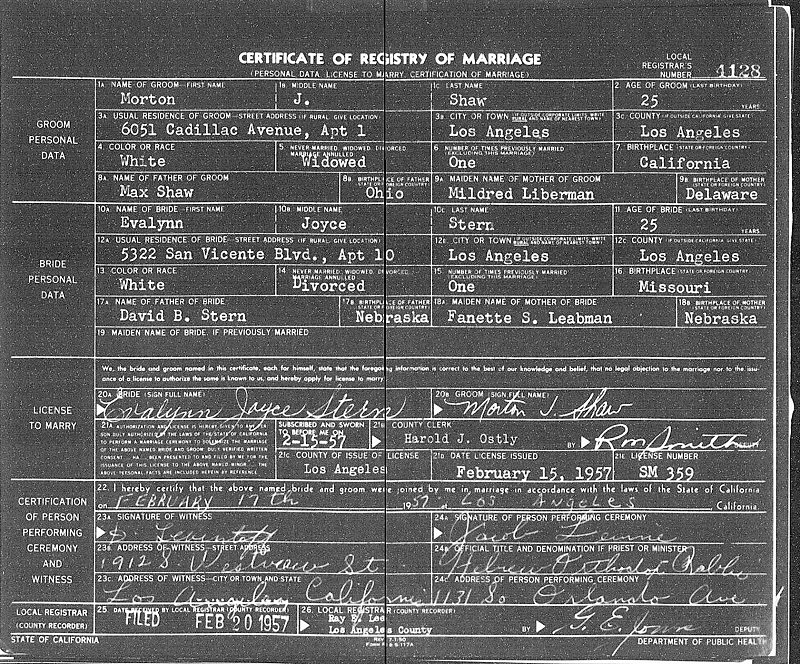 CERTIFICATE OF REGISTRY OF MARRIAGE
(PERSONAL DATA, LICENSE TO MARRY, CERTIFICATION OF MARRIAGE)
LOCAL REGISTRAR'S NUMBER 4128
GROOM PERSONAL DATA
1A NAME OF GROOM—FIRST NAME 1B MIDDLE NAME 1C LAST NAME 2. AGE OF GROOM (LAST BIRTHDAY)
Morton J. Shaw 25 YEARS
3A USUAL RESIDENCE OF GROOM—STREET ADDRESS (IF RURAL, GIVE LOCATION) 3B CITY OR TOWN 3C COUNTY (IF OUTSIDE CALIFORNIA GIVE STATE)
6051 Cadillac Avenue, Apt 1 Los Angeles Los Angeles
4. COLOR OR RACE 5. NEVER MARRIED, WIDOWED, DIVORCED, MARRIAGE ANNULLED 6. NUMBER OF TIMES PREVIOUSLY MARRIED (EXCLUDING THIS MARRIAGE) 7. BIRTHPLACE (STATE OR FOREIGN COUNTRY)
White Widowed One California
8A NAME OF FATHER OF GROOM 8B BIRTHPLACE OF FATHER (STATE OR FOREIGN COUNTRY) 9A MAIDEN NAME OF MOTHER OF GROOM 9B BIRTHPLACE OF MOTHER (STATE OR FOREIGN COUNTRY)
Max Shaw Ohio Mildred Liberman Delaware
BRIDE PERSONAL DATA
10A NAME OF BRIDE—FIRST NAME 10B MIDDLE NAME 10C LAST NAME 11. AGE OF BRIDE (LAST BIRTHDAY)
Evalynn Joyce Stern 25 YEARS
12A USUAL RESIDENCE OF BRIDE—STREET ADDRESS (IF RURAL, GIVE LOCATION) 12B CITY OR TOWN 12C COUNTY (IF OUTSIDE CALIFORNIA GIVE STATE)
5322 San Vicente Blvd., Apt 10 Los Angeles Los Angeles
13. COLOR OR RACE 14 NEVER MARRIED, WIDOWED, DIVORCED, MARRIAGE ANNULLED 15. NUMBER OF TIMES PREVIOUSLY MARRIED (EXCLUDING THIS MARRIAGE) 16. BIRTHPLACE (STATE OR FOREIGN COUNTRY)
White Divorced One Missouri
17A NAME OF FATHER OF BRIDE 17B BIRTHPLACE OF FATHER (STATE OR FOREIGN COUNTRY) 18A MAIDEN NAME OF MOTHER OF BRIDE 18B BIRTHPLACE OF MOTHER (STATE OR FOREIGN COUNTRY)
David B. Stern Nebraska Fanette S. Leabman Nebraska
19 MAIDEN NAME OF BRIDE, IF PREVIOUSLY MARRIED
LICENSE TO MARRY
We, the bride and groom named in this certificate, each for himself, state that the foregoing information is correct to the best of our knowledge and belief, that no legal objection to the marriage nor to the issu-
ance of a license to authorize the same is known to us, and hereby apply for license to marry
20A BRIDE (SIGN FULL NAME) 20B GROOM (SIGN FULL NAME)
Evalynn Joyce Stern Morton J. Shaw
21A AUTHORIZATION AND LICENSE IS HEREBY GIVEN TO ANY PER-
SON DULY AUTHORIZED BY THE LAWS OF THE STATE OF CALIFORNIA
TO PERFORM A MARRIAGE CEREMONY TO SOLEMNIZE THE MARRIAGE
OF THE ABOVE NAMED BRIDE AND GROOM
SUBSCRIBED AND SWORN TO BEFORE ME ON
2-15-57
21B COUNTY CLERK
Harold J. Ostly BY Smith DEPUTY
21C COUNTY OF ISSUE OF LICENSE 21D DATE LICENSE ISSUED 21E LICENSE NUMBER
Los Angeles February 15, 1957 SM 359
CERTIFICATION OF PERSON PERFORMING CEREMONY AND WITNESS
22. I hereby certify that the above named bride and groom were joined by me in marriage in accordance with the laws of the State of California
on FEBRUARY 17th 1957 at LOS ANGELES California
23A SIGNATURE OF WITNESS 24A SIGNATURE OF PERSON PERFORMING CEREMONY
Jacob Levine
23B ADDRESS OF WITNESS—STREET ADDRESS 24B OFFICIAL TITLE AND DENOMINATION IF PRIEST OR MINISTER
1912 S. Westview St Hebrew Orthodox Rabbi
23C ADDRESS OF WITNESS—CITY OR TOWN AND STATE 24C ADDRESS OF PERSON PERFORMING CEREMONY
Los Angeles California 1131 So Orlando Ave
LOCAL REGISTRAR (COUNTY RECORDER)
25. DATE RECEIVED BY LOCAL REGISTRAR (COUNTY RECORDER) 26. LOCAL REGISTRAR (COUNTY RECORDER)
FILED FEB 20 1957 Ray E. Lee
Los Angeles County BY G. E. Jones DEPUTY
STATE OF CALIFORNIA DEPARTMENT OF PUBLIC HEALTH